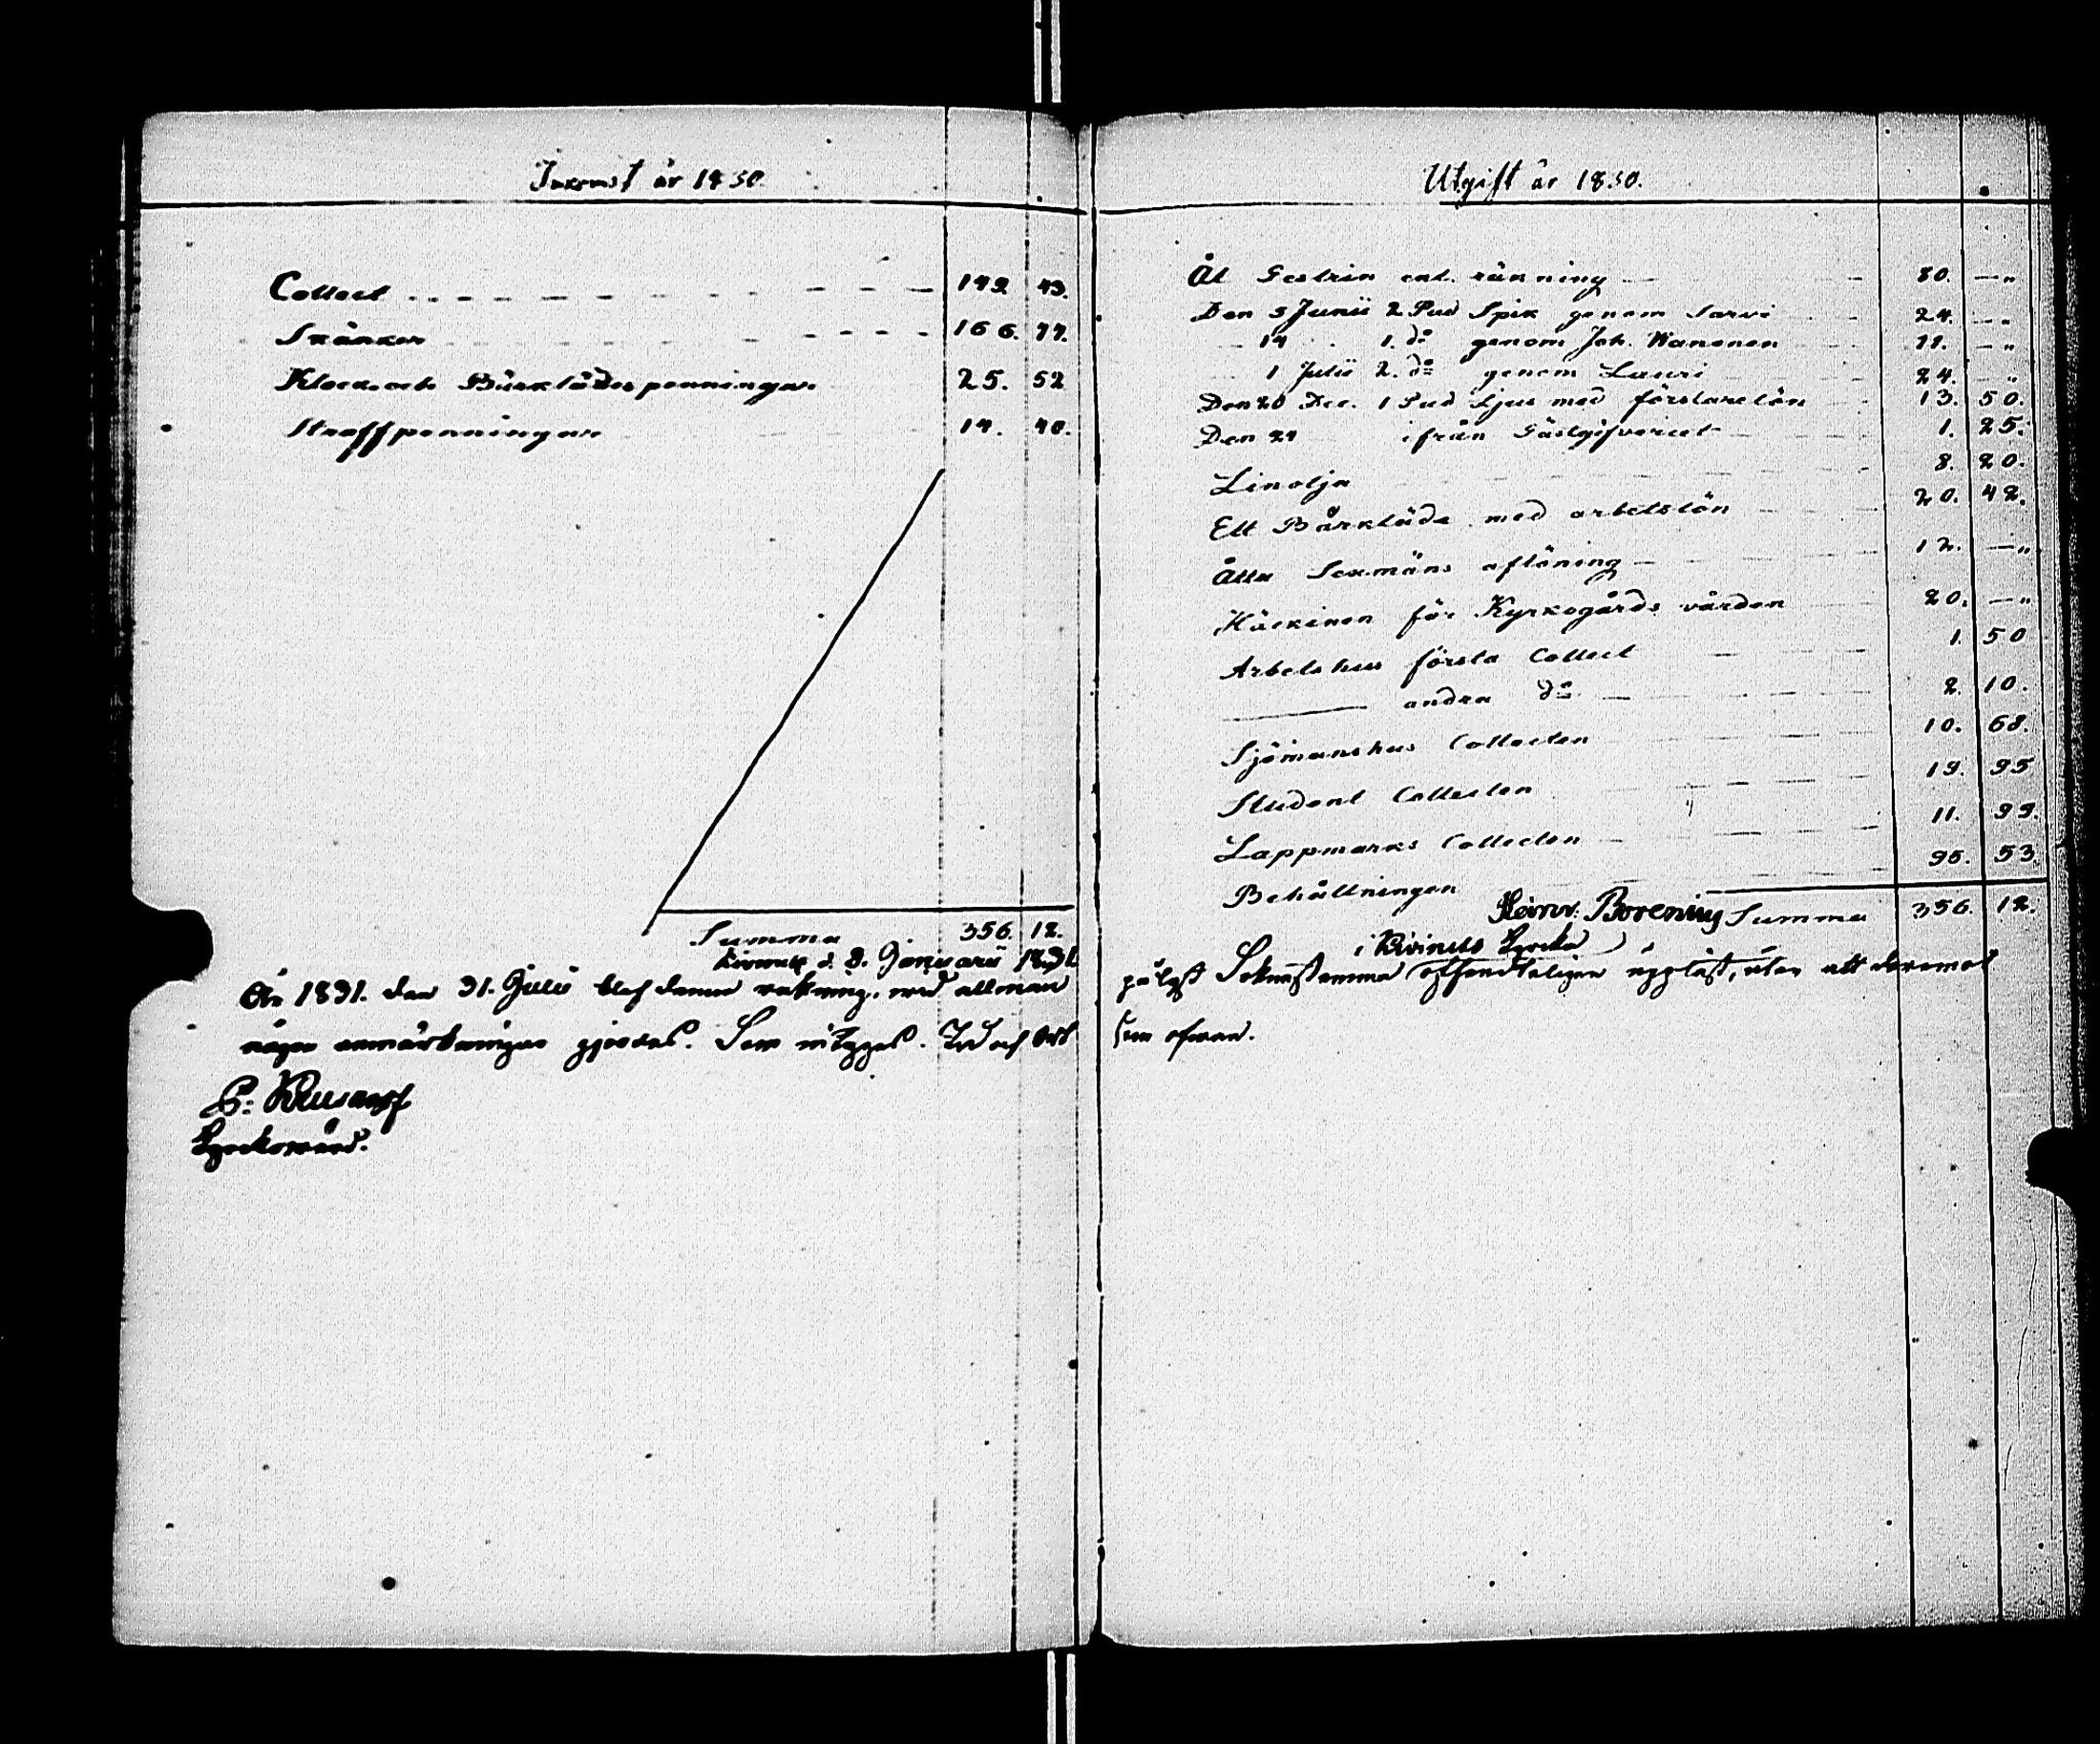 Inkomst år 1830.
Collect 149 43.
Skänker 166. 77.
Klock- och Bårklädespenningar 25. 52
Straffpenningar 14. 40.
Summa 356. 12.
d. 8. Januarii 1831.
År 1831. den 31. Julii blef denna räkning, vid allmän
några anmärkningar gjordes. Som intygges. Tid och Ort
Kyrkovärd.
Utgift år 1830.
Åt Gestrin enl. räkning 80. — „
Den 5 Junii 2 Pud Spik genom Sarvi 24. — „
14 1. do genom Joh. Wanonen 11. — „
1 Julii 2. do genom Lauri 24. — „
Den 20 Dec. 1 Pud Ljus med förslarelön 13. 50.
Den 21 ifrån Gästgifveriet 1. 25.
Linolja 8. 20.
Ett Bårkläde med arbetslön 20. 42.
Åtta Sexmäns aflöning 12. — „
Häkinen för Kyrkogårds vården 20. — „
Arbetshus första Collect 1. 50
——— andra do 2. 10.
Sjömanshus Collecten 10. 68.
Student Collecten 19. 95
Lappmarks Collecten 11. 99.
Behållningen 95. 53
Summa 356. 12.
Heinr. Borenius
i Kivineb Kyrka
pålyst Sockenstämma offendteligen uppläst, utan att deremot
som ofvan.